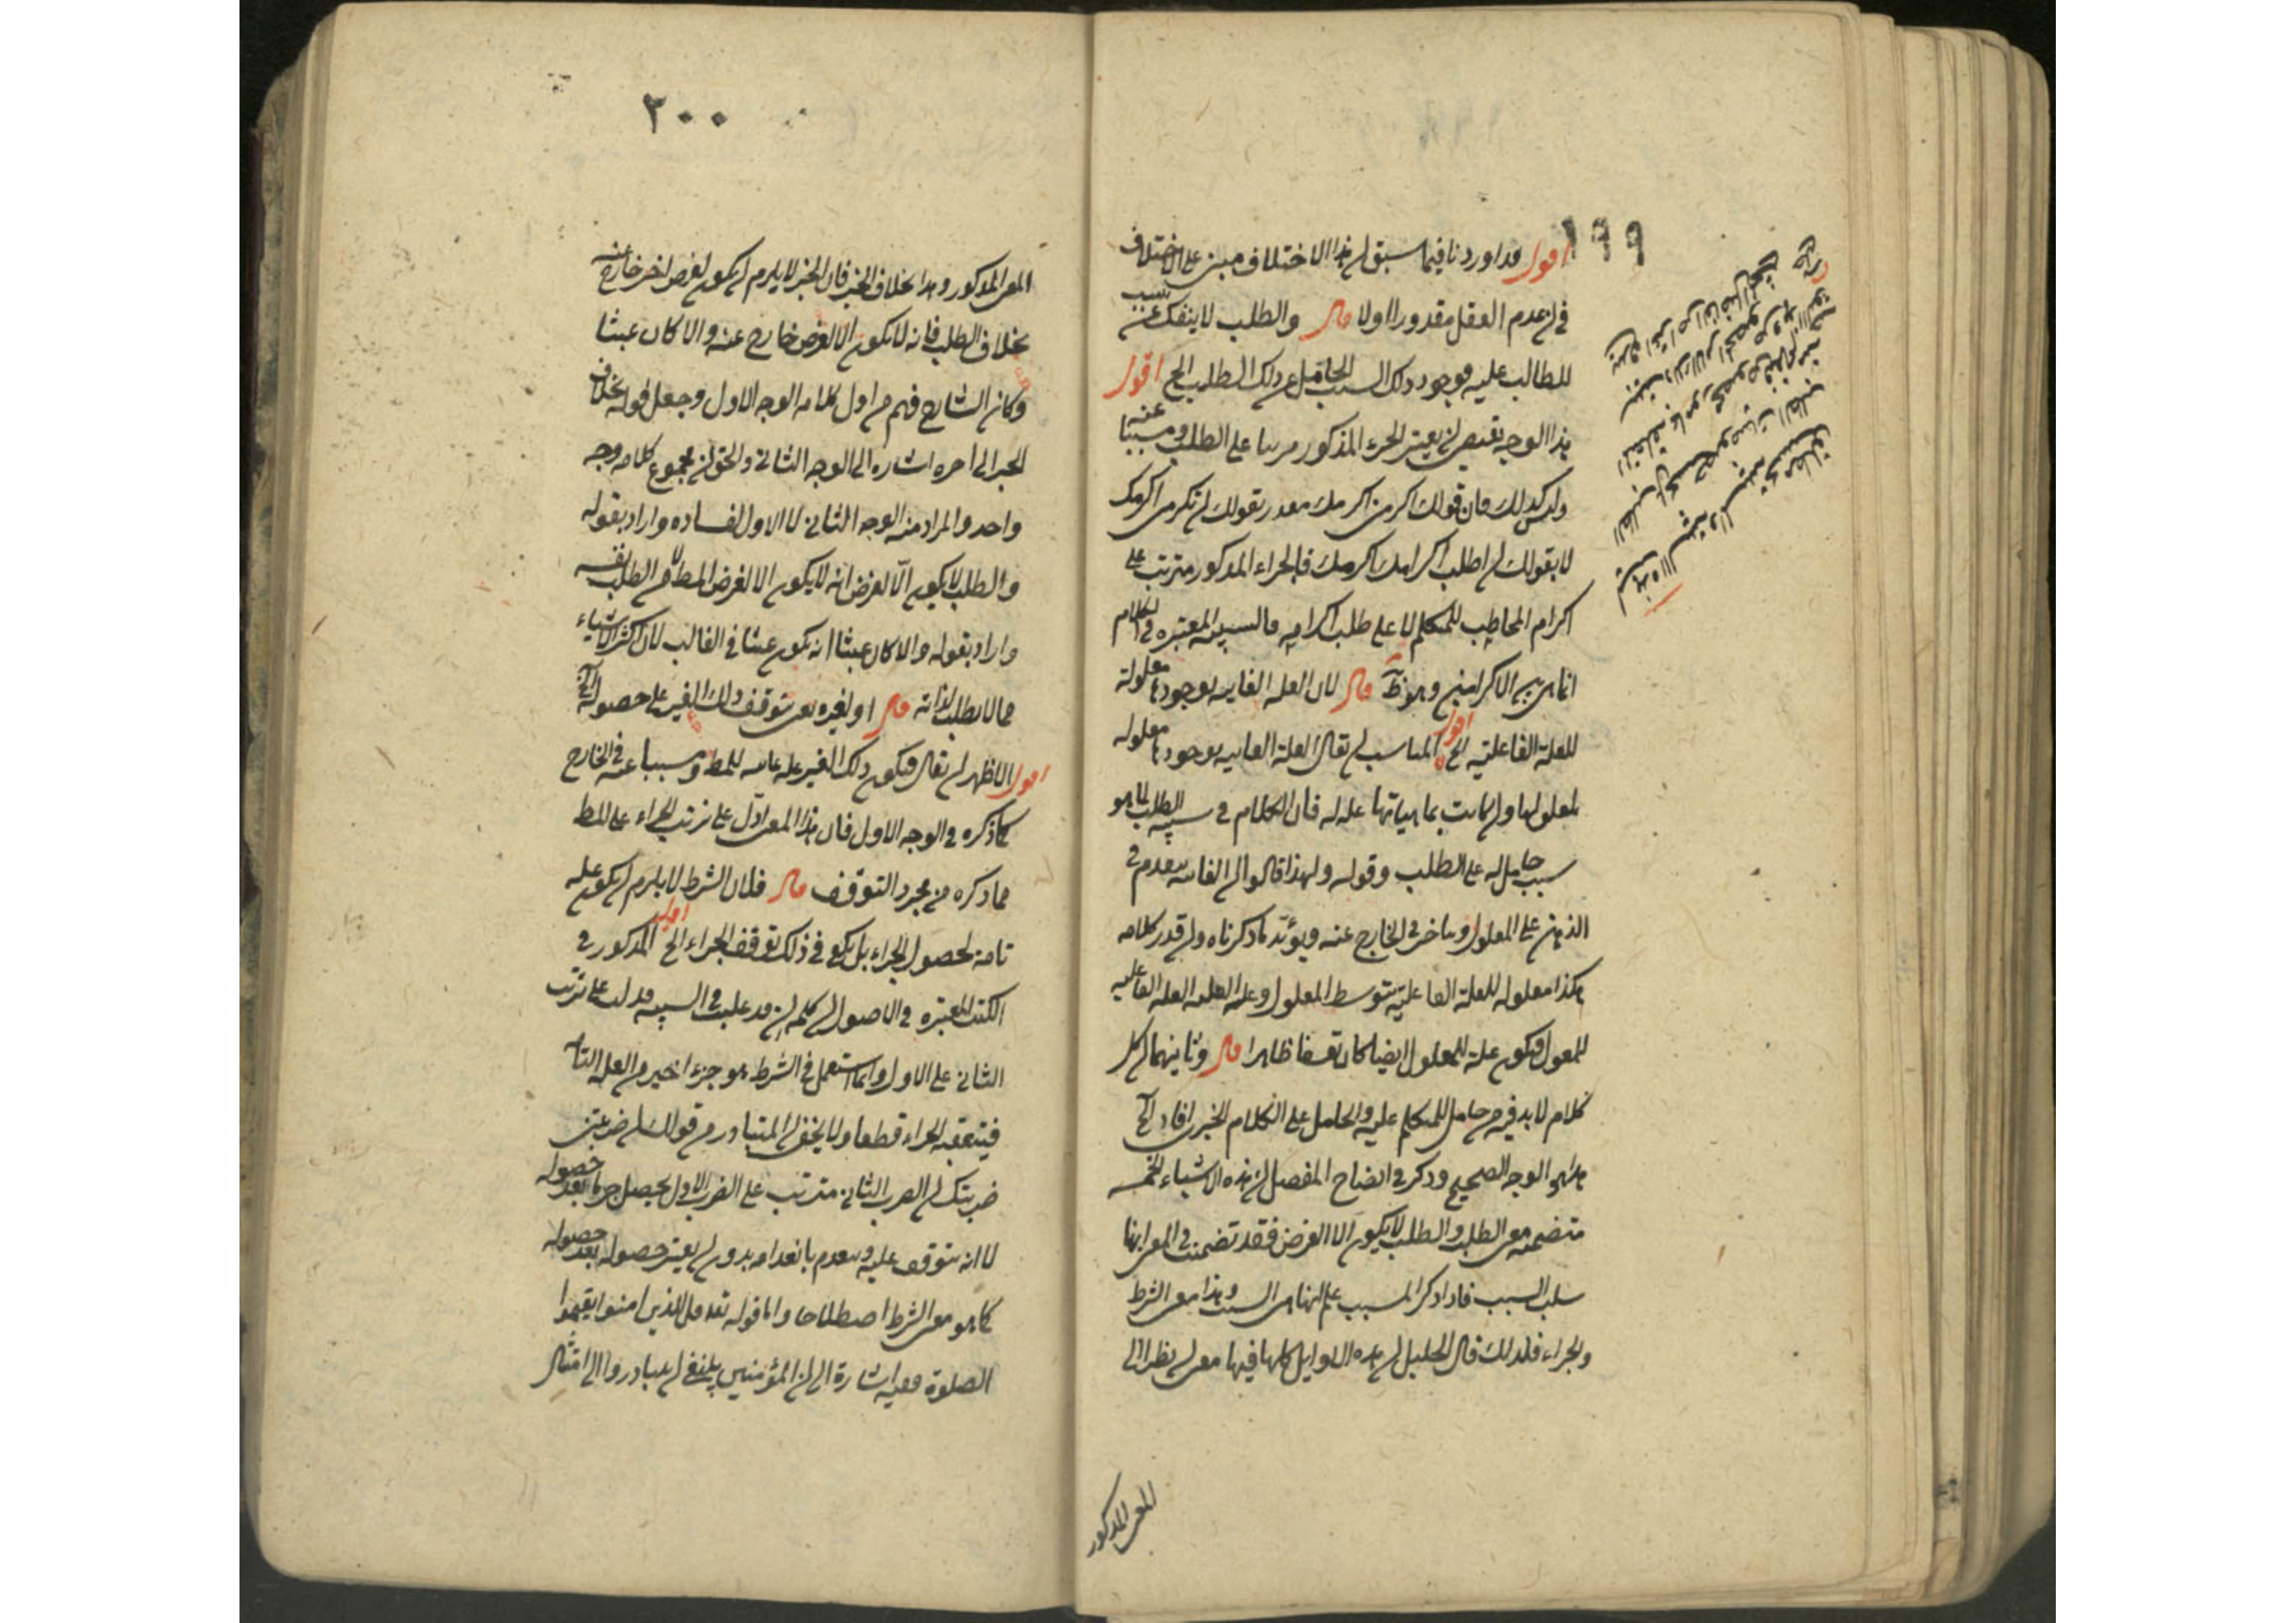 ١٩٩
اقول قد اوردنا فيما سبق ان هذا الاختلاف مبنى على الاختلاف
في ان عدم الفعل مقدور اولا قال والطلب لا ينفك عن سبب
للطالب عليه فوجود ذلك السبب الحامل على ذلك الطلب الخ اقول
هذا الوجه يقتضى ان يعتبر الجزء المذكور مرتبا على الطلب ومسببا عنه
وليس كذلك فان قولك اكرمنى اكرمك مقدر بقولك ان تكرمنى اكرمك
لا بقولك ان اطلب اكرامك اكرمك فالجزاء المذكور مترتب على
اكرام المخاطب للمتكلم لا على طلب اكرامه فالسببية المعتبرة في الكلام
انما هى بين الاكرامين وهو ظ قال لان العلة الغاية بوجودها معلولة
للعلة الفاعلية الخ اقول المناسب ان يقال العلة الغاية بوجودها معلولة
لمعلولها وان كانت بماهياتها علة له فان الكلام في سببية الطلب لما هو
سبب حامل له على الطلب وقوله ولهذا قالوا ان الغاية يتقدم في
الذهن على المعلول ويتاخر في الخارج عنه ويؤيد ما ذكرناه وان قدر كلامه
هكذا معلولة للعلة الفاعلية بتوسط المعلول وعلة العلة الفاعلية
للمعول فيكون علة للمعلول ايضا كان تعسفا ظاهرا قال وثانيهما ان كل
كلام لا بد فيه من حامل للمتكلم عليه والحامل على الكلام الخبرى افادة الخ
هذا هو الوجه الصحيح وذكر في ايضاح المفصل ان هذه الاشياء الخمسة
متضمنة معنى الطلب والطلب لا يكون الا لغرض فقد تضمنت في المعنى انها
سبب المسبب فاذا ذكر المسبب علم انها هى السبب وهذا معنى الشرط
والجزاء فلذلك قال الخليل ان هذه الاوايل كلها فيها معنى ان نظرا الى
المعنى المذكور
٢٠٠
المعنى المذكور وهذا بخلاف الخبر فان الخبر لا يلزم ان يكون لغرض اخر خارج عنه
بخلاف الطلب فانه لا يكون الا لغرض خارج عنه والا كان عبثا
وكان الشارح فهم من اول كلامه الوجه الاول وجعل قوله بخلاف
الخبر الى اخره اشارة الى الوجه الثانى والحق ان مجموع كلامه وجه
واحد والمراد منه الوجه الثانى لا الاول لفساده واراد بقوله
والطلب لا يكون الّا لغرض انه لا يكون الا لغرض المط لا من الطلب نفسه
واراد بقوله والا كان عبثا انه يكون عبثا في الغالب لان اكثر الاشياء
مما لا يطلب لذاته قال او لغيره يعنى يتوقف ذلك الغير على حصوله الخ
اقول الاظهر ان يقال فيكون ذلك الغير علة غائية للمط ومسببا عنه في الخارج
كما ذكره في الوجه الاول فان هذا المعنى ادل على ترتب الجزاء على المط
مما ذكره من مجرد التوقف قال فلان الشرط لا يلزم ان يكون علة
تامة لحصول الجزاء بل يكفى في ذلك توقف الجزاء الخ اقول المذكور في
الكتب المعتبرة في الاصول ان كلمة ان قد غلبت في السببية فدلت على ترتب
الثانى على الاول وانما استعمل في الشرط هو جزء اخير من العلة التامة
فيتعقبه الجزاء قطعا ولا يخفى ان المتبادر من قولك ان ضربتنى
ضربتك ان الضرب الثانى مترتب على الضرب الاول يحصل جزما بعد حصوله
لا انه يتوقف عليه وينعدم بانعدامه بدون ان يعتبر حصوله بعد حصوله
كما هو معنى الشرط اصطلاحا واما قوله تعه قل للذين امنوا يقيموا
الصلوة ففيه اشارة الى ان المؤمنين ينبغى ان يبادروا الى امتثال